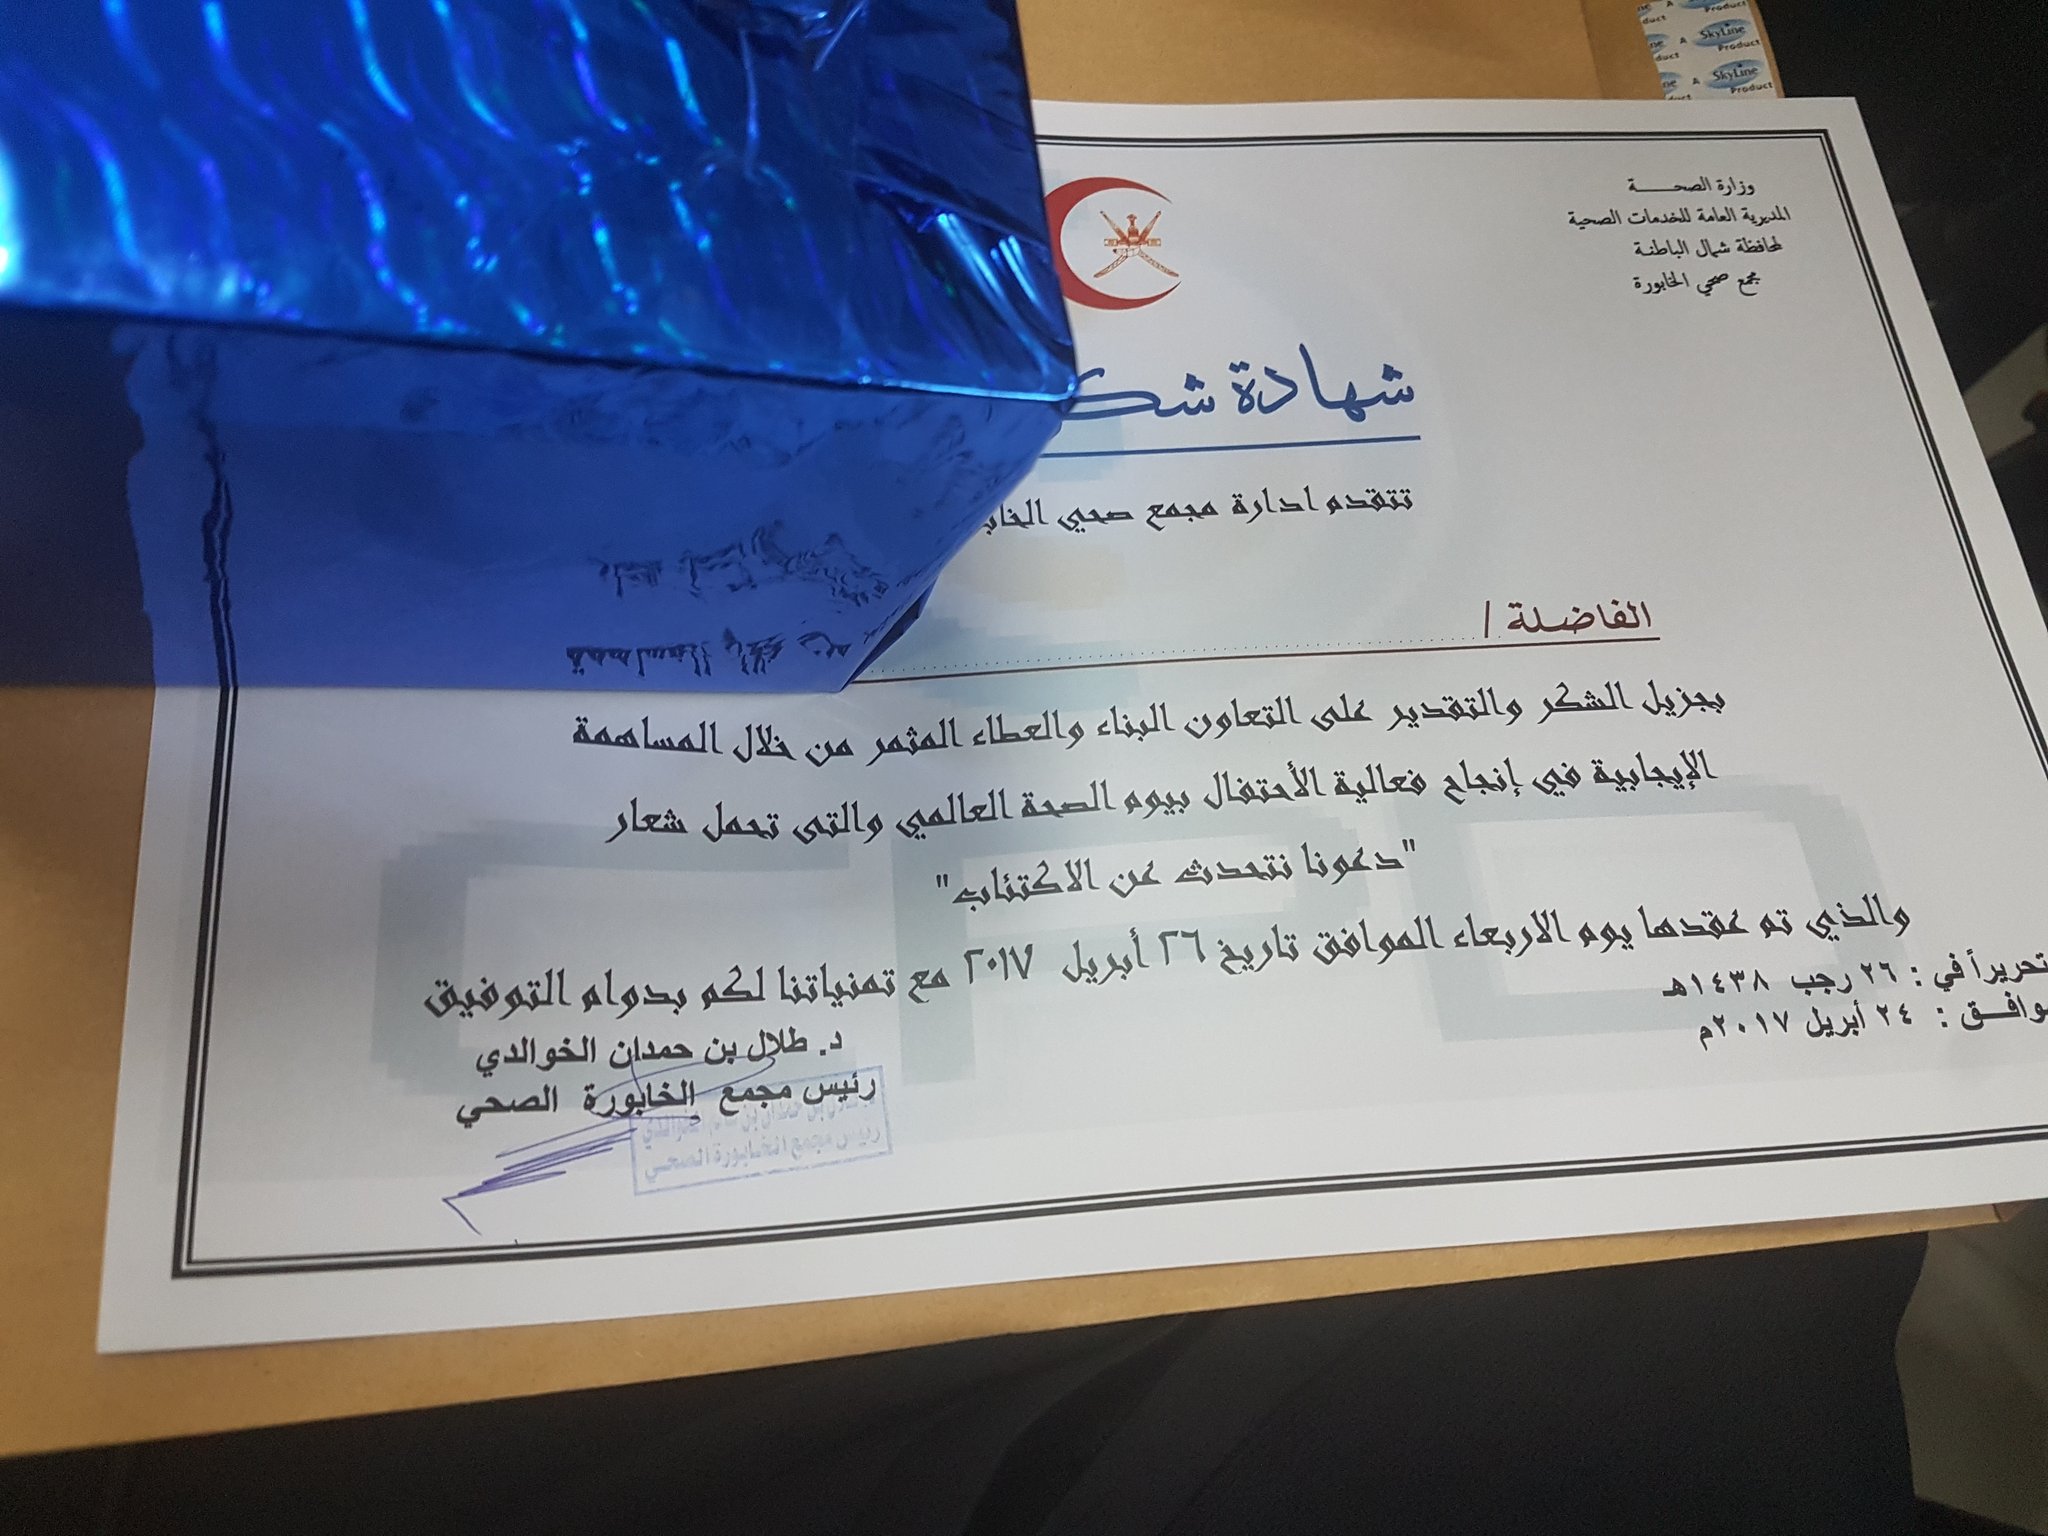 وزارة الصحـــــة
المديرية العامة للخدمات الصحية
لمحافظة شمال الباطنة
مجمع صحي الخابورة
شهادة شك
تتقدم ادارة مجمع صحي الخاب
الفاضلة /
بجزيل الشكر والتقدير على التعاون البناء والعطاء المثمر من خلال المساهمة
الإيجابية في إنجاح فعالية الأحتفال بيوم الصحة العالمي والتى تحمل شعار
"دعونا نتحدث عن الاكتئاب"
والذي تم عقدها يوم الاربعاء الموافق تاريخ ٢٦ أبريل ٢٠١٧ مع تمنياتنا لكم بدوام التوفيق
تحريرأ في : ٢٦ رجب ١٤٣٨هـ
وافــق : ٢٤ أبريل ٢٠١٧م
د. طلال بن حمدان الخوالدي
رئيس مجمع الخابورة الصحي
رئيس مجمع الخابورة الصحي
A SkyLine Product